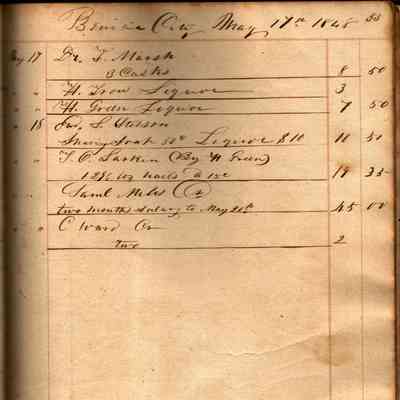 Benicia City May 17th 1848 33
May 17 Dr. F. Marsh
3 Casks 8 50
" " H. Trow Liquor 3
" " H. Green Liquor 7 50
" 18 S. Stetson
50c Liquor $10 10 50
" " T. O. Larkin (By H Green)
nails @ 15c 19 35
Saml Miles Cr
two months salary to May 20th 45 00
" " C Ward Cr
two 2